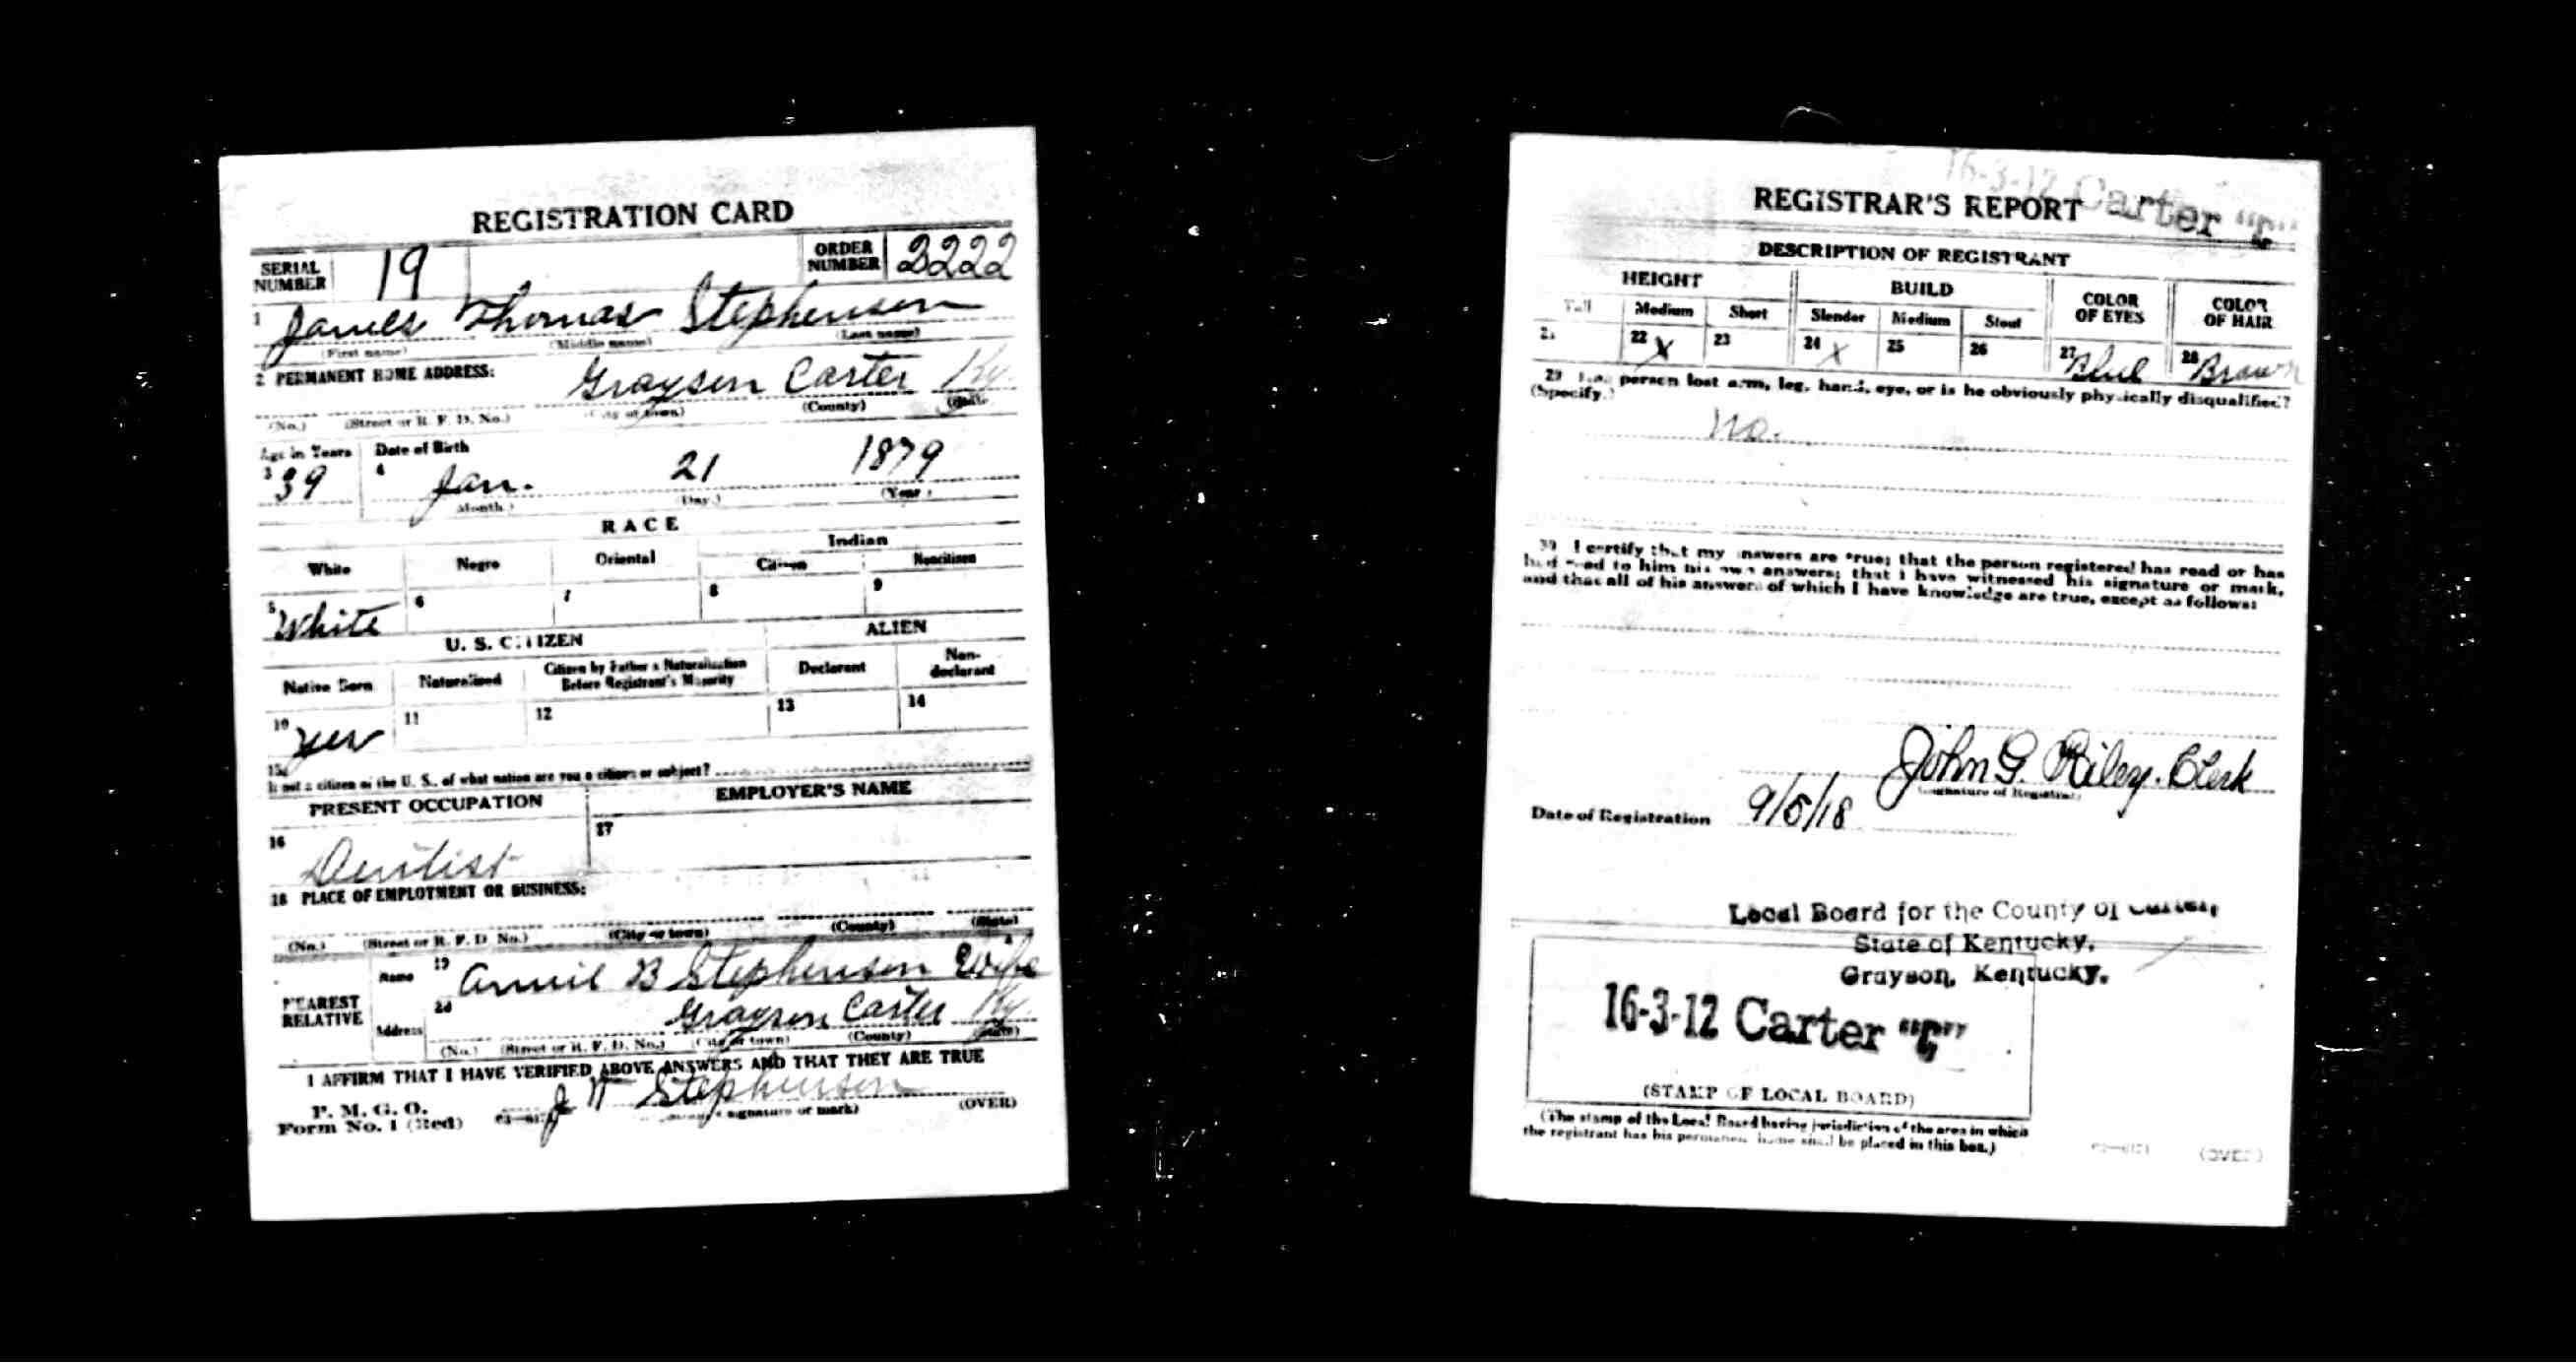 REGISTRATION CARD
SERIAL NUMBER 19 ORDER NUMBER 2222
1 James Thomas Stephenson
(First name) (Middle name) (Last name)
2 PERMANENT HOME ADDRESS: Grayson Carter Ky.
(No.) (Street or R. F. D. No.) (City or town) (County) (State)
Age in Years Date of Birth
3 39 4 Jan. 21 1879
(Month.) (Day.) (Year.)
RACE
White Negro Oriental Indian
Citizen Noncitizen
5 White 6 7 8 9
U. S. CITIZEN ALIEN
Native Born Naturalized Citizen by Father's Naturalization Before Registrant's Majority Declarant Non-declarant
10 yes 11 12 13 14
15
If not a citizen of the U. S., of what nation are you a citizen or subject?
PRESENT OCCUPATION EMPLOYER'S NAME
16 Dentist 17
18 PLACE OF EMPLOYMENT OR BUSINESS:
(No.) (Street or R. F. D. No.) (City or town) (County) (State)
NEAREST RELATIVE Name 19 Annie B Stephenson Wife
Address 20 Grayson Carter Ky.
(No.) (Street or R. F. D. No.) (City or town) (County) (State)
I AFFIRM THAT I HAVE VERIFIED ABOVE ANSWERS AND THAT THEY ARE TRUE
P. M. G. O.
Form No. 1 (Red) Stephenson
signature or mark) (OVER)
16-3-12 Carter "C"
REGISTRAR'S REPORT
DESCRIPTION OF REGISTRANT
HEIGHT BUILD COLOR OF EYES COLOR OF HAIR
Tall Medium Short Slender Medium Stout
21 22 X 23 24 X 25 26 27 Blue 28 Brown
29 Has person lost arm, leg, hand, eye, or is he obviously physically disqualified?
(Specify.)
No.
30 I certify that my answers are true; that the person registered has read or has
had read to him his own answers; that I have witnessed his signature or mark,
and that all of his answers of which I have knowledge are true, except as follows:
John G. Riley. Clerk
(Signature of Registrar)
Date of Registration 9/5/18
Local Board for the County of Carter,
State of Kentucky.
Grayson, Kentucky.
16-3-12 Carter "C"
(STAMP OF LOCAL BOARD)
(The stamp of the Local Board having jurisdiction of the area in which
the registrant has his permanent home shall be placed in this box.)
(OVER)